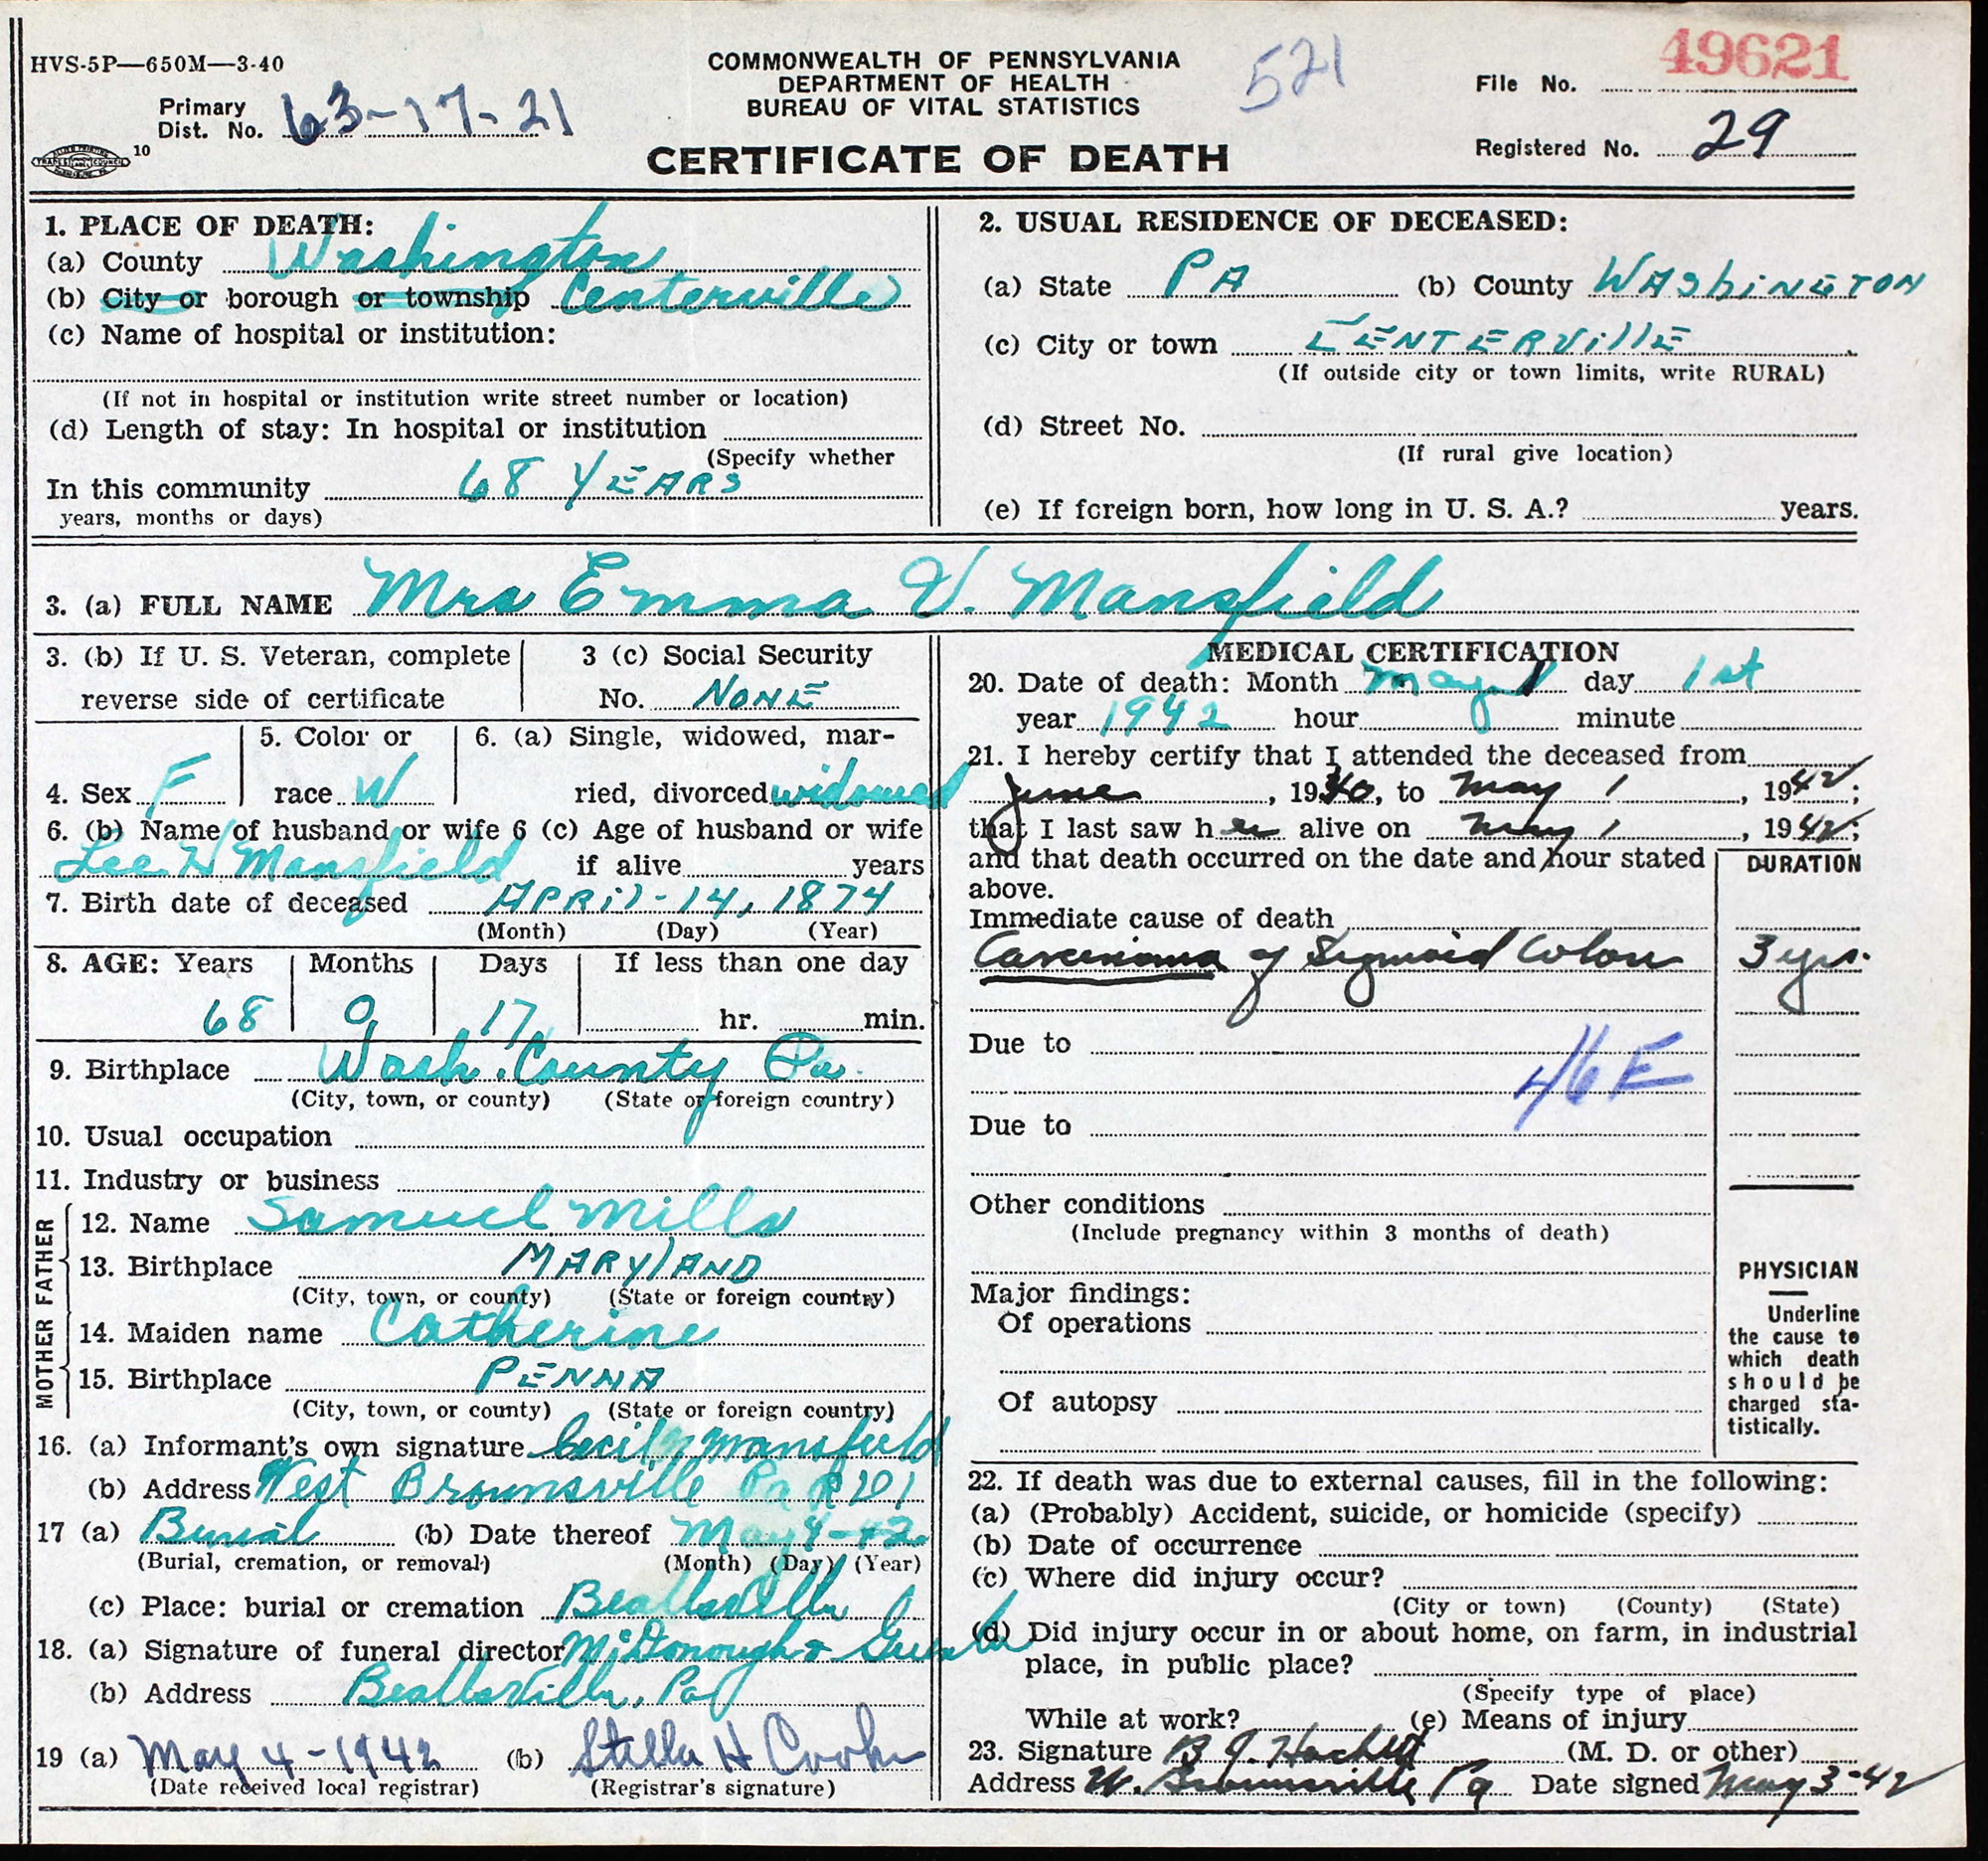 HVS-5P—650M—3-40
COMMONWEALTH OF PENNSYLVANIA
DEPARTMENT OF HEALTH
BUREAU OF VITAL STATISTICS
521
File No. 49621
Primary
Dist. No. 63-17-21
10
CERTIFICATE OF DEATH
Registered No. 29
1. PLACE OF DEATH:
(a) County Washington
(b) City or borough or township Centerville
(c) Name of hospital or institution:
(If not in hospital or institution write street number or location)
(d) Length of stay: In hospital or institution
(Specify whether
In this community 68 YEARS
years, months or days)
2. USUAL RESIDENCE OF DECEASED:
(a) State PA (b) County WAShiNGTON
(c) City or town CENTERVillE
(If outside city or town limits, write RURAL)
(d) Street No.
(If rural give location)
(e) If foreign born, how long in U. S. A.? years.
3. (a) FULL NAME Mrs Emma V. Mansfield
3. (b) If U. S. Veteran, complete
reverse side of certificate
3 (c) Social Security
No. NONE
4. Sex F
5. Color or
race W
6. (a) Single, widowed, mar-
ried, divorced widowed
6. (b) Name of husband or wife
Lee H Mansfield
6 (c) Age of husband or wife
if alive years
7. Birth date of deceased APRil-14, 1874
(Month) (Day) (Year)
8. AGE: Years Months Days If less than one day
68 0 17 hr. min.
9. Birthplace Wash. County Pa.
(City, town, or county) (State or foreign country)
10. Usual occupation
11. Industry or business
FATHER
12. Name Samuel Mills
13. Birthplace MARYlAND
(City, town, or county) (State or foreign country)
MOTHER
14. Maiden name Catherine
15. Birthplace PENNA
(City, town, or county) (State or foreign country)
16. (a) Informant's own signature Cecil Mansfield
(b) Address West Brownsville Pa
17 (a) Burial (b) Date thereof May 4-42
(Burial, cremation, or removal) (Month) (Day) (Year)
(c) Place: burial or cremation Beallsville
18. (a) Signature of funeral director McDonough &
(b) Address Beallsville, Pa
19 (a) May 4-1942 (b) Stella H Cooke
(Date received local registrar) (Registrar's signature)
MEDICAL CERTIFICATION
20. Date of death: Month May day 1st
year 1942 hour minute
21. I hereby certify that I attended the deceased from
June, 1940, to May 1, 1942;
that I last saw her alive on May 1, 1942;
and that death occurred on the date and hour stated
above.
DURATION
Immediate cause of death
Carcinoma of Sigmoid Colon 3 yrs.
Due to
46E
Due to
Other conditions
(Include pregnancy within 3 months of death)
Major findings:
Of operations
Of autopsy
PHYSICIAN
Underline
the cause to
which death
should be
charged sta-
tistically.
22. If death was due to external causes, fill in the following:
(a) (Probably) Accident, suicide, or homicide (specify)
(b) Date of occurrence
(c) Where did injury occur?
(City or town) (County) (State)
(d) Did injury occur in or about home, on farm, in industrial
place, in public place?
(Specify type of place)
While at work? (e) Means of injury
23. Signature B. J. Hackett (M. D. or other)
Address W. Brownsville Pa Date signed May 3-42